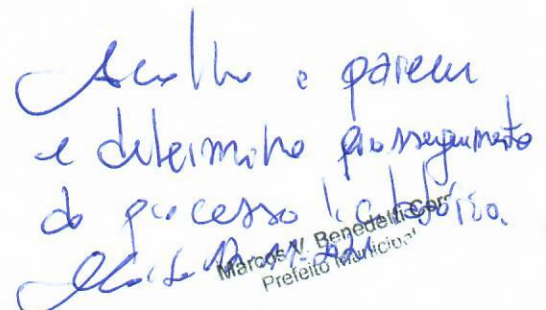 Acolho o parecer
e determino prosseguimento
do processo licitatório.
Marcos V. Benedetti
Prefeito Municipal